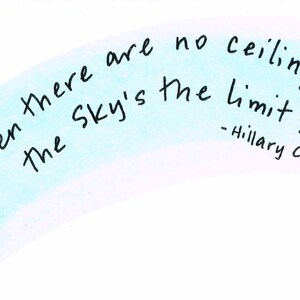 there are no
the sky's the limit
-Hillary